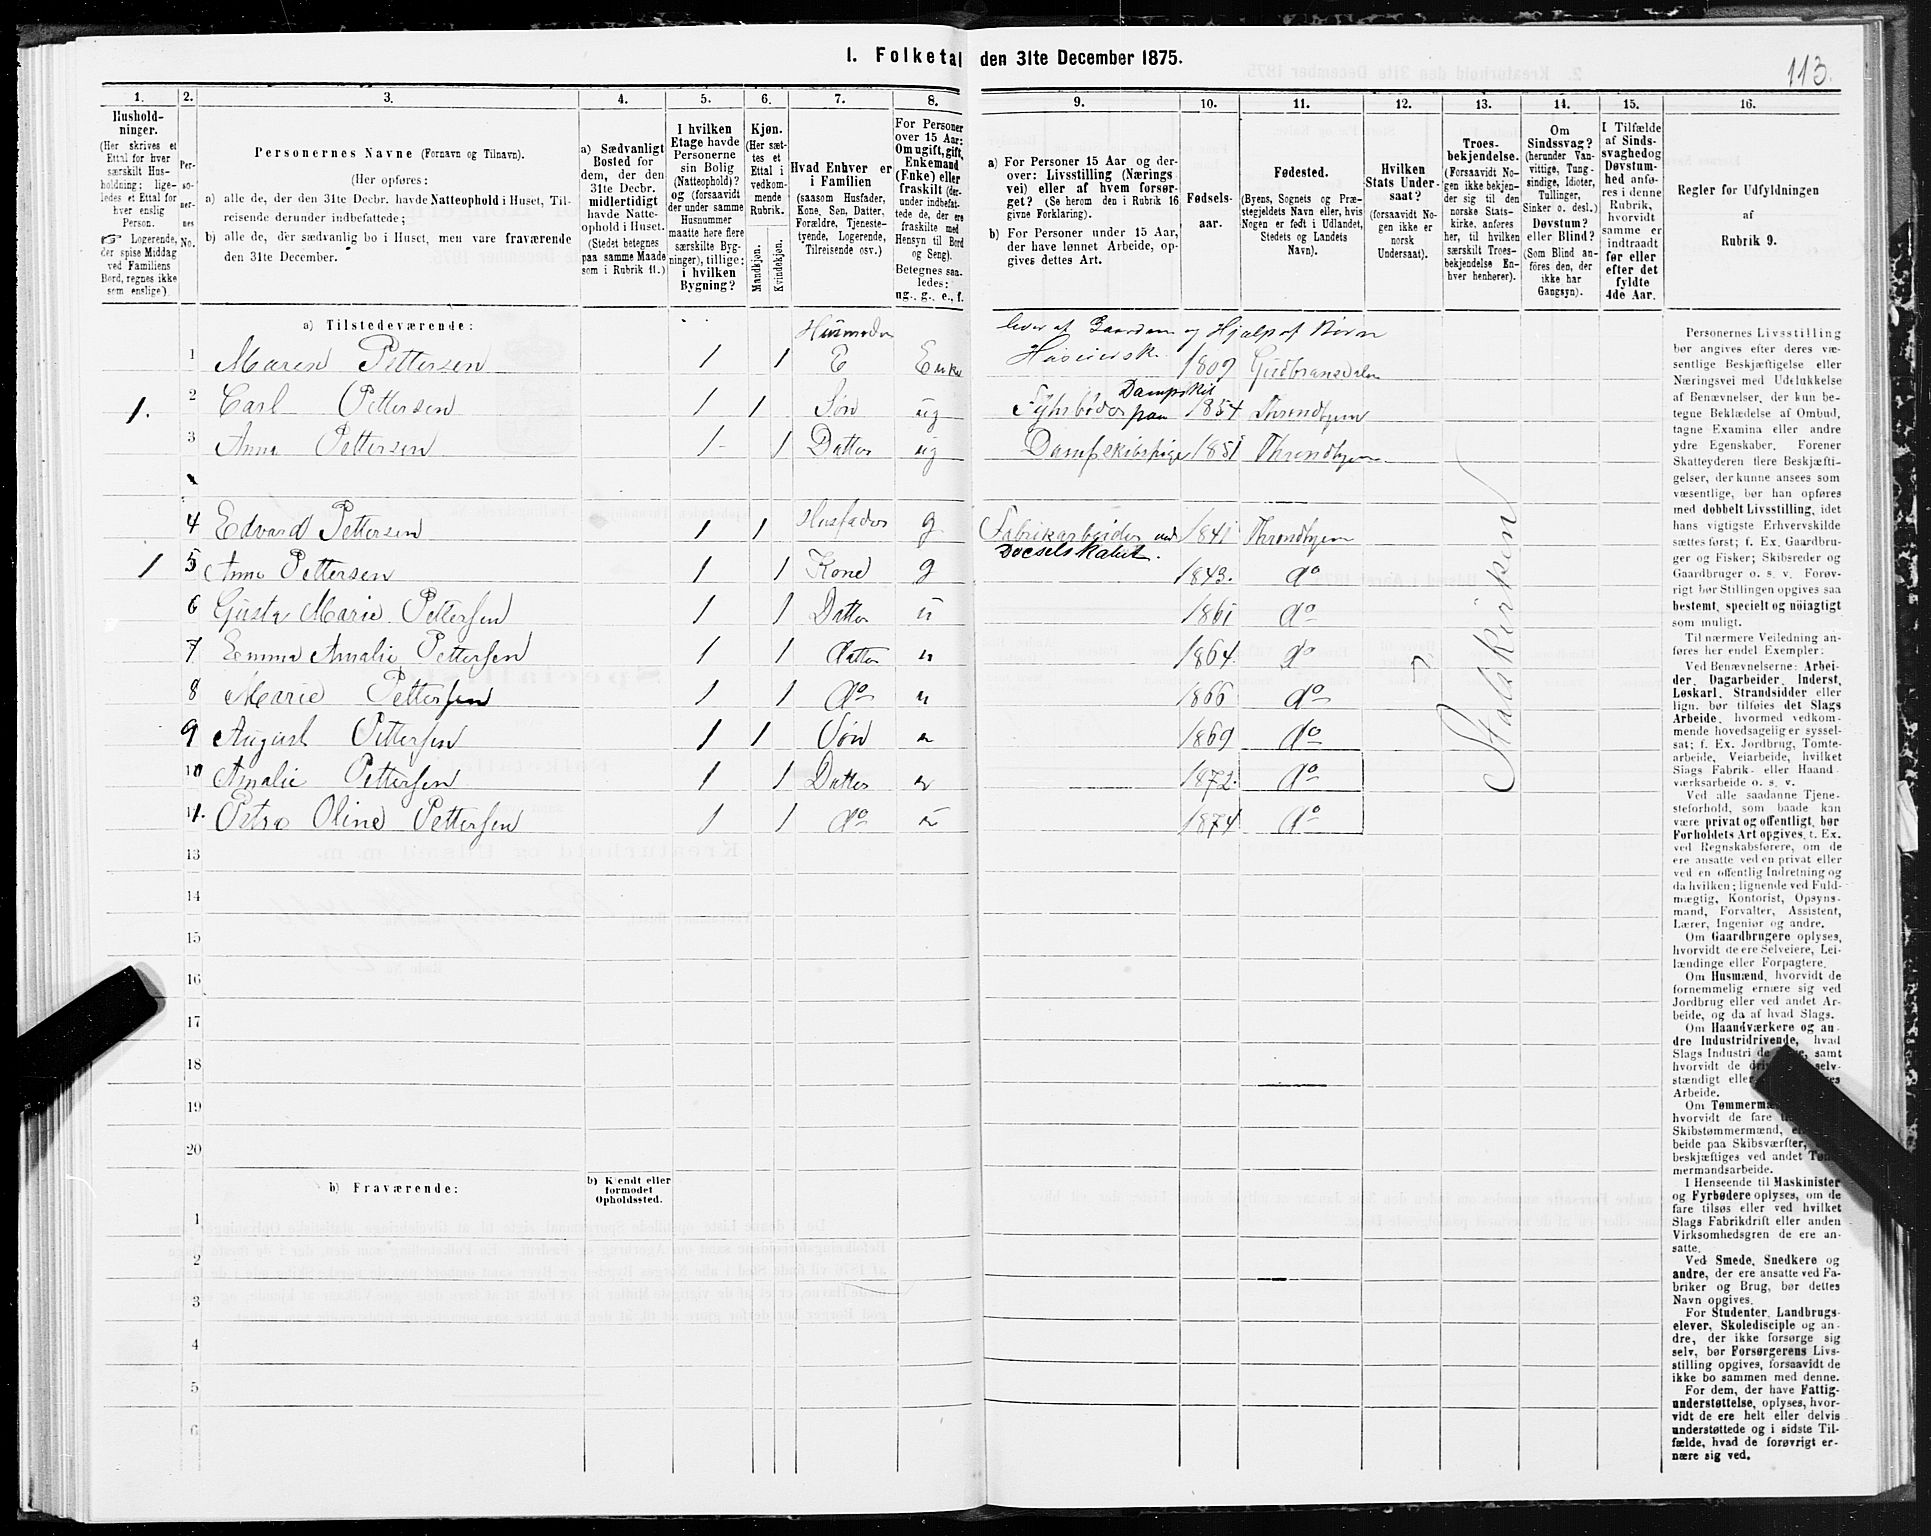 I. Folketal den 31te December 1875.
113.
1. 2. 3. 4. 5. 6. 7. 8. 9. 10. 11. 12. 13. 14. 15. 16.
Hushold-
ninger.
(Her skrives et
Ettal for hver
særskilt Hus-
holdning; lige-
ledes et Ettal for
hver enslig
Person.
☞ Logerende,
der spise Middag
ved Familiens
Bord, regnes ikke
som enslige).
Per-
so-
ner-
nes
No.
Personernes Navne (Fornavn og Tilnavn).
(Her opføres:
a) alle de, der den 31te Decbr. havde Natteophold i Huset, Til-
reisende derunder indbefattede;
b) alle de, der sædvanlig bo i Huset, men vare fraværende
den 31te December.
a) Sædvanligt
Bosted for
dem, der den
31te Decbr.
midlertidigt
havde Natte-
ophold i Huset.
(Stedet betegnes
paa samme Maade
som i Rubrik 11.)
I hvilken
Etage havde
Personerne
sin Bolig
(Natteophold)?
og (forsaavidt
der under samme
Husnummer
maatte høre flere
særskilte Byg-
ninger), tillige:
i hvilken
Bygning?
Kjøn.
(Her sæt-
tes et
Ettal i
vedkom-
mende
Rubrik.
Mandkjøn.
Kvindekjøn.
Hvad Enhver er
i Familien
(saasom Husfader,
Kone, Søn, Datter,
Forældre, Tjeneste-
tyende, Logerende,
Tilreisende osv.)
For Personer
over 15 Aar:
Om ugift, gift,
Enkemand
(Enke) eller
fraskilt (der-
under indbefat-
tede de, der ere
fraskilte med
Hensyn til Bord
og Seng).
Betegnes saa-
ledes:
ug., g., e., f.
a) For Personer 15 Aar og der-
over: Livsstilling (Nærings
vei) eller af hvem forsør-
get? (Se herom den i Rubrik 16
givne Forklaring).
b) For Personer under 15 Aar,
der have lønnet Arbeide, op-
gives dettes Art.
Fødsels-
aar.
Fødested.
(Byens, Sognets og Præ-
stegjeldets Navn eller, hvis
Nogen er født i Udlandet,
Stedets og Landets
Navn).
Hvilken
Stats Under-
saat?
(forsaavidt No-
gen ikke er
norsk
Undersaat).
Troes-
bekjendelse.
(Forsaavidt No-
gen ikke bekjen-
der sig til den
norske Stats-
kirke, anføres
her, til hvilken
særskilt Troes-
bekjendelse En-
hver henhører).
Om
Sindssvag?
(herunder Van-
vittige, Tung-
sindige, Idioter,
Tullinger,
Sinker o. desl.)
Døvstum?
eller Blind?
(Som Blind an-
føres den, der
ikke har
Gangsyn).
I Tilfælde
af Sinds-
svaghed og
Døvstum-
hed anfø-
res i denne
Rubrik,
hvorvidt
samme er
indtraadt
før eller
efter det
fyldte
4de Aar.
Regler for Udfyldningen
af
Rubrik 9.
a) Tilstedeværende:
Husmoder lever af Gaarden og Hjælp af Børn
1 Maren Pettersen 1 1 E Enke 1809 Gudbransdalen
1. 2 Carl Pettersen 1 1 Søn ug Fyhrbøder paa Dampskib 1854 Throndhjem
3 Anna Pettersen 1 1 Datter ug Dampskibspige 1851 Throndhjem
4 Edvard Pettersen 1 1 Husfader g Fabrikarbeider ved 1841 Throndhjem
1 5 Anne Pettersen 1 1 Kone g 1843. do
6 Gusta Marie Pettersen 1 1 Datter 1861 do
7 Emma Amalie Pettersen 1 1 datter 1864. do
8 Marie Pettersen 1 1 do 1866 do
9 August Pettersen 1 1 Søn 1869 do
10 Amalie Pettersen 1 1 Datter 1872. do
11. Petra Oline Pettersen 1 1 do 1874 do
Statskirken
13
14
15
16
17
18
19
20
b) Fraværende:
b) Kjendt eller
formodet
Opholdssted.
1
2
3
4
5
6
Personernes Livsstilling
bør angives efter deres væ-
sentlige Beskjæftigelse eller
Næringsvei med Udelukkelse
af Benævnelser, der kun be-
tegne Beklædelse af Ombud,
tagne Examina eller andre
ydre Egenskaber. Forener
Skatteyderen flere Beskjæfti-
gelser, der kunne ansees som
væsentlige, bør han opføres
med dobbelt Livsstilling, idet
hans vigtigste Erhvervskilde
sættes først; f. Ex. Gaardbru-
ger og Fisker; Skibsreder og
Gaardbruger o. s. v. Forøv-
rigt bør Stillingen opgives saa
bestemt, specielt og nöiagtigt
som muligt.
Til nærmere Veiledning an-
føres her endel Exempler:
Ved Benævnelserne: Arbei-
der, Dagarbeider, Inderst,
Løskarl, Strandsidder eller
lign. bør tilføies det Slags
Arbeide, hvormed vedkom-
mende hovedsagelig er syssel-
sat; f. Ex. Jordbrug, Tomte-
arbeide, Veiarbeide, hvilket
Slags Fabrik- eller Haand
værksarbeide o. s. v.
Ved alle saadanne Tjene-
steforhold, som baade kan
være privat og offentligt, bør
Forholdets Art opgives, t. Ex.
ved Regnskabsførere, om de
ere ansatte ved en privat eller
ved en offentlig Indretning og
da hvilken; lignende ved Fuld-
mægtig, Kontorist, Opsyns-
mand, Forvalter, Assistent,
Lærer, Ingeniør og andre.
Om Gaardbrugere oplyses,
hvorvidt de ere Selveiere, Lei-
lændinge eller Forpagtere.
Om Husmænd, hvorvidt de
fornemmelig ernære sig ved
Jordbrug eller ved andet Ar-
beide, og da af hvad Slags.
Om Haandværkere og an
dre Industridrivende, hvad
Slags Industri samt
hvorvidt de selv-
stændigt eller
Arbeide.
Om
hvorvidt de fare
Skibstømmermænd,
beide paa Skibsværfter,
beskjæftiges ved andet
mermandsarbeide.
I Henseende til Maskinister
og Fyrbødere oplyses, om de
fare tilsøs eller ved hvilket
Slags Fabrikdrift eller anden
Virksomhedsgren de ere an-
satte.
Ved Smede, Snedkere og
andre, der ere ansatte ved Fa-
briker og Brug, bør dettes
Navn opgives.
For Studenter, Landbrugs-
elever, Skoledisciple og an-
dre, der ikke forsørge sig
selv, bør Forsørgerens Livs-
stilling opgives, forsaavidt de
ikke bo sammen med denne.
For dem, der have Fattig-
understøttelse, oplyses, hvor-
vidt de ere helt eller delvis
understøttede og i sidste Til-
fælde, hvad de forøvrigt er-
nære sig ved.